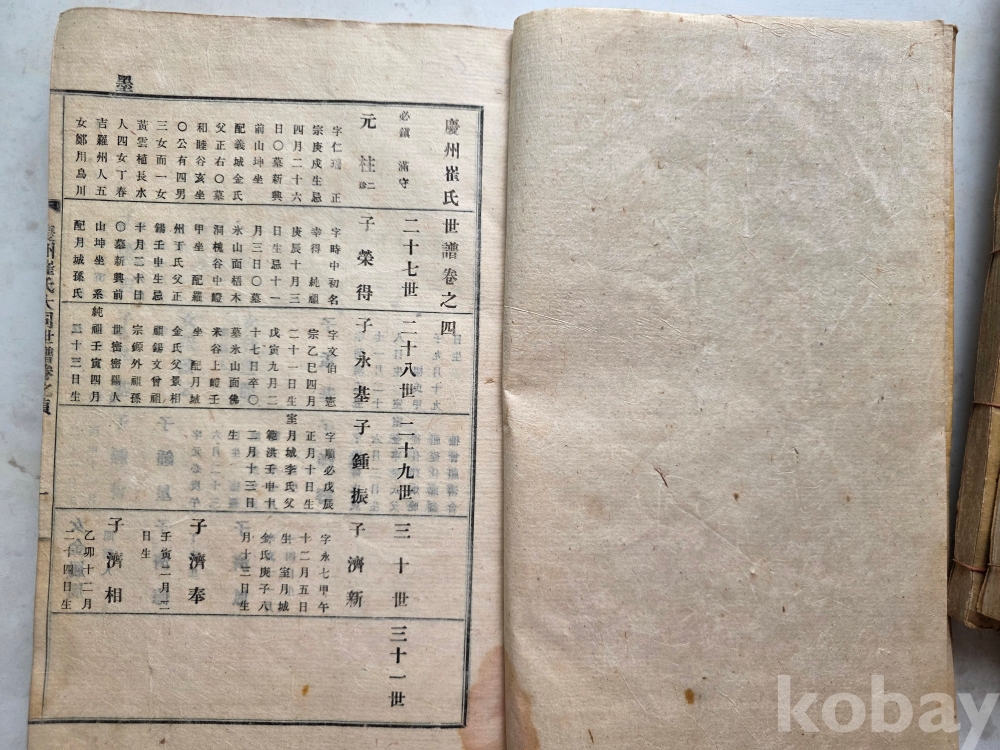 墨
慶州崔氏世譜卷之四
二十七世
二十八世
二十九世
三十世
三十一世
必鎭 滿守
元柱 二珍
字仁瑞 正
宗庚戌生忌
四月二十六
日〇墓新興
前山坤坐
配義城金氏
父正右〇墓
和睦谷亥坐
〇公有四男
三女而一女
黃雲植長水
人四女丁春
吉羅州人五
女鄭用烏川
子榮得
字時中初名
幸得 純祖
庚辰十月三
日生忌十一
月三日〇墓
氷山面梧木
洞機谷中嶝
甲坐 配羅
州丁氏父正
錫壬申生忌
十月二十日
〇墓新興前
山坤坐 系
配月城孫氏
子永基
字文伯 憲
宗乙巳四月
二十一日生
戊寅九月二
十七日卒〇
墓氷山面佛
米谷上嶝壬
坐 配月城
金氏父景相
祖錫文曾祖
宗源外祖孫
世密密陽人
純祖壬寅四月
二十三日生
子鍾振
字順必戊辰
正月十日生
室月城李氏父
範洪壬申十
二月十三日
生
子濟新
字永七甲午
十二月五日
生 室月城
金氏庚子八
月十三日生
子濟奉
壬寅二月二
日生
子濟相
乙卯十二月
二十四日生
慶州崔氏大同世譜卷之貞
一
kobay